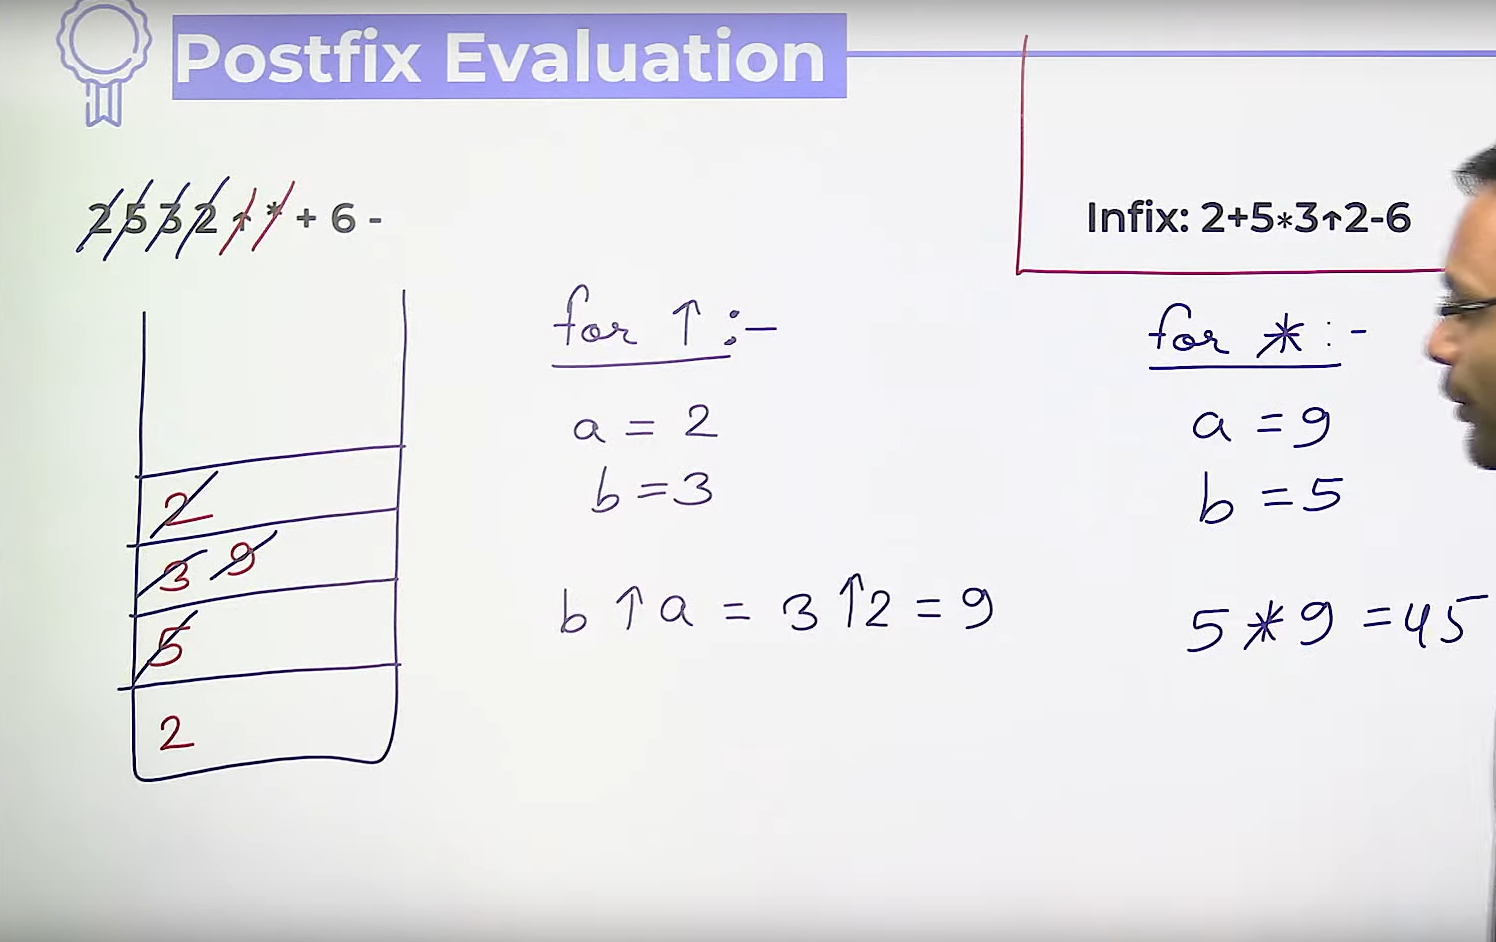 Postfix Evaluation
2 5 3 2 ↑ * + 6 -
Infix: 2+5*3↑2-6
for ↑ :-
a = 2
b = 3
b ↑ a = 3 ↑ 2 = 9
for * :-
a = 9
b = 5
5 * 9 = 45
2
3 9
5
2